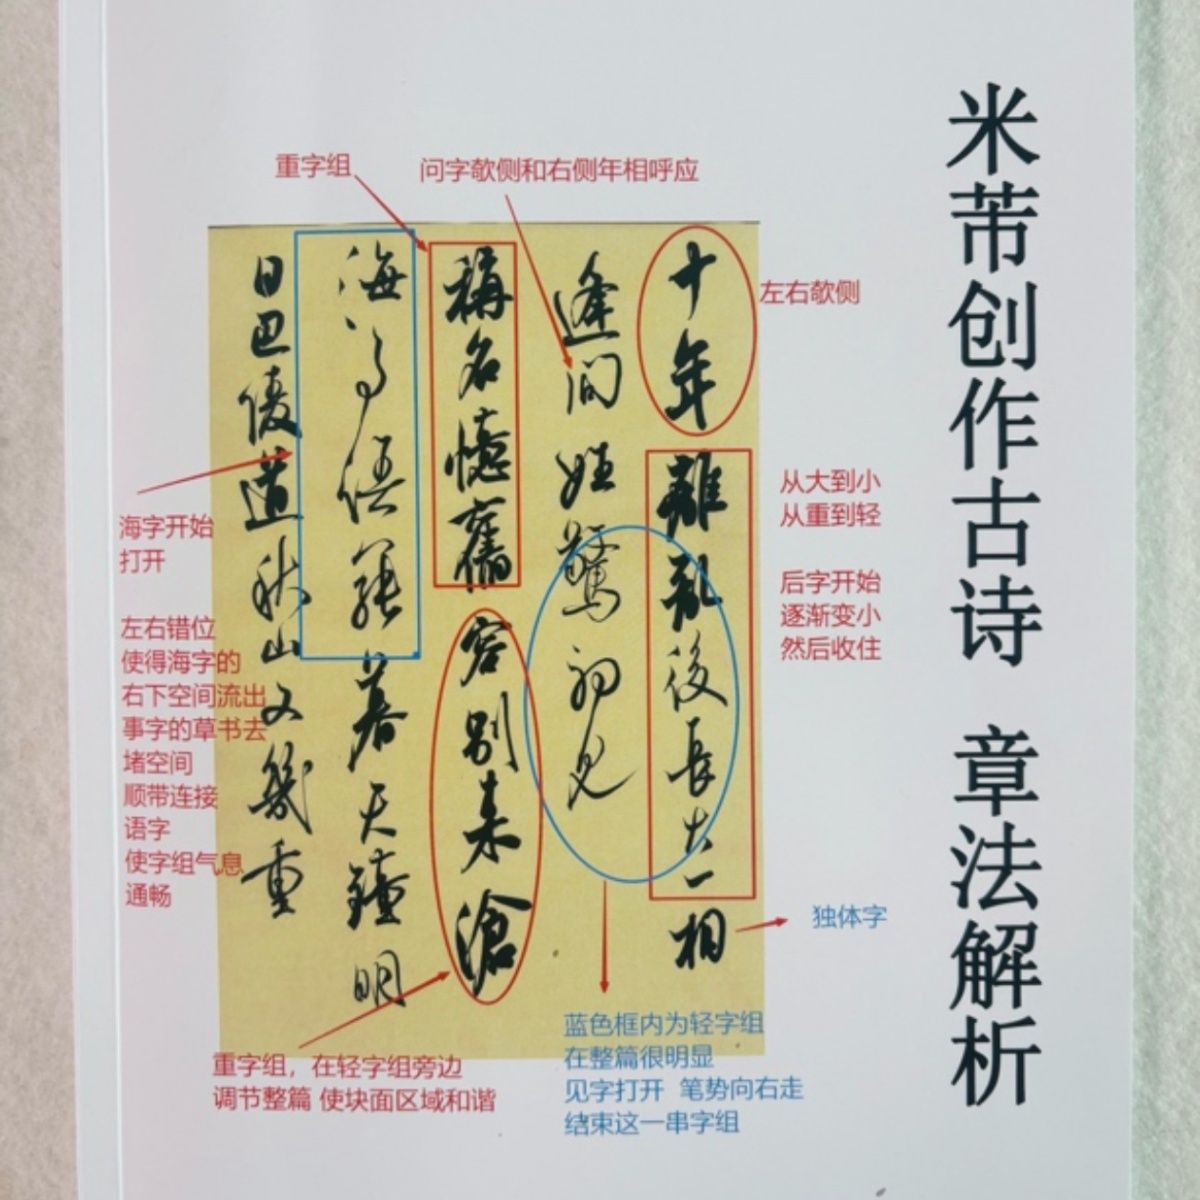 米芾创作古诗 章法解析
重字组
问字欹侧和右侧年相呼应
左右欹侧
十年離亂後長大一相
逢问姓驚初見
稱名憶舊容别来滄
海事语罢暮天鐘明
日巴陵道秋山又幾重
从大到小
从重到轻
后字开始
逐渐变小
然后收住
独体字
海字开始
打开
左右错位
使得海字的
右下空间流出
事字的草书去
堵空间
顺带连接
语字
使字组气息
通畅
重字组，在轻字组旁边
调节整篇 使块面区域和谐
蓝色框内为轻字组
在整篇很明显
见字打开 笔势向右走
结束这一串字组